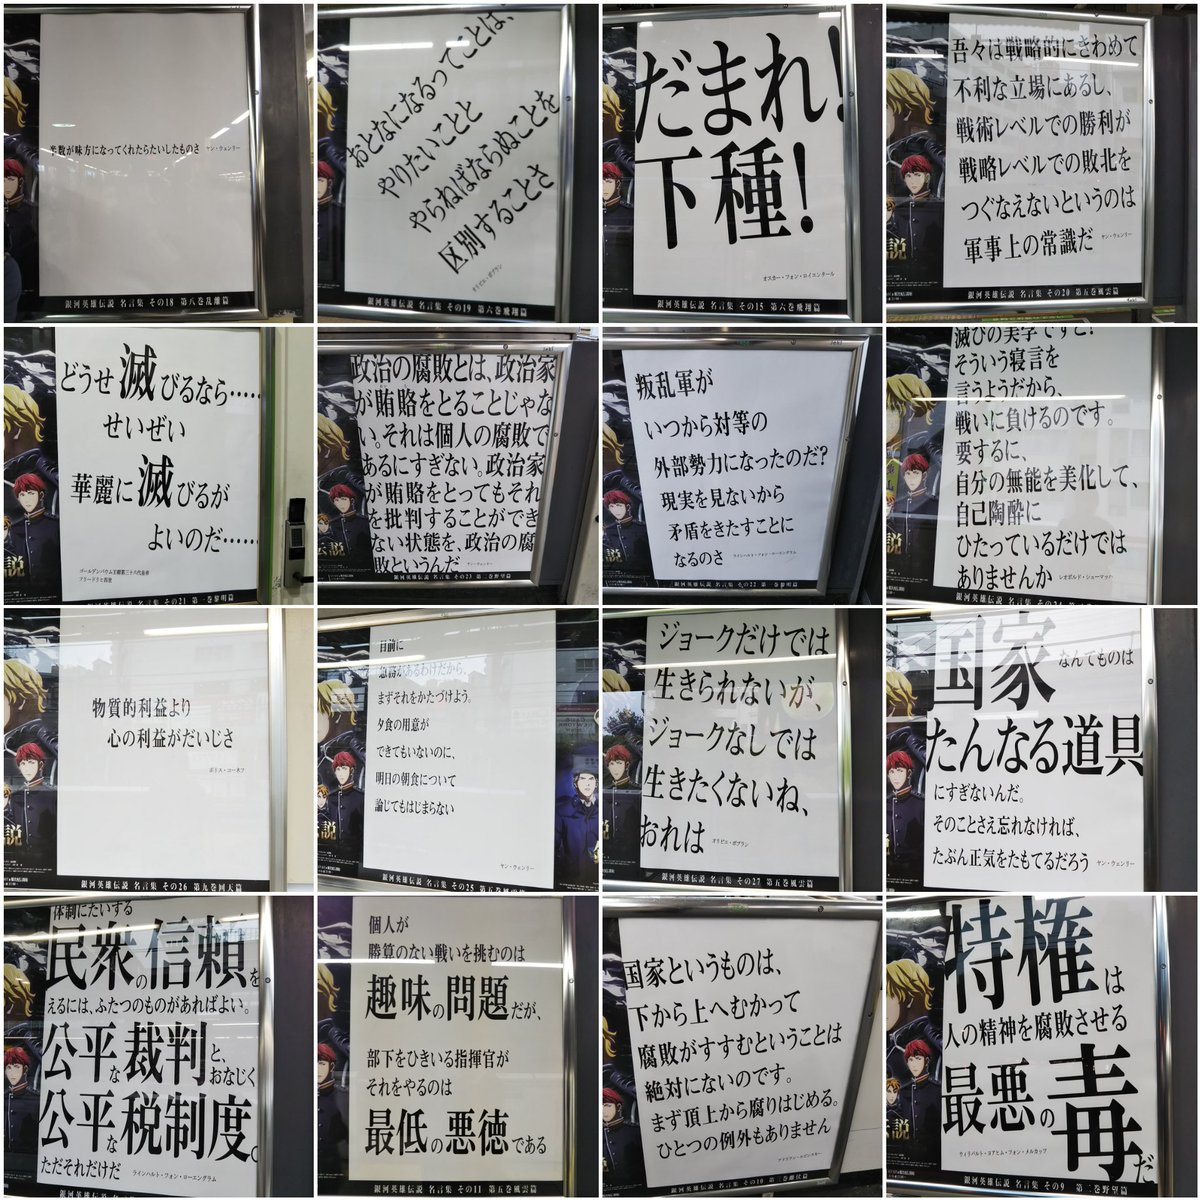 半数が味方になってくれたらたいしたものさ ヤン・ウェンリー
銀河英雄伝説 名言集 その18 第八巻乱離篇
おとなになるってことは、
やりたいことと
やらねばならぬことを
区別することさ
オリビエ・ポプラン
銀河英雄伝説 名言集 その19 第六巻飛翔篇
だまれ!
下種!
オスカー・フォン・ロイエンタール
銀河英雄伝説 名言集 その15 第六巻飛翔篇
吾々は戦略的にきわめて
不利な立場にあるし、
戦術レベルでの勝利が
戦略レベルでの敗北を
つぐなえないというのは
軍事上の常識だ ヤン・ウェンリー
銀河英雄伝説 名言集 その20 第五巻風雲篇
どうせ滅びるなら……
せいぜい
華麗に滅びるが
よいのだ……
ゴールデンバウム王朝第三十六代皇帝
フリードリヒ四世
銀河英雄伝説 名言集 その21 第一巻黎明篇
政治の腐敗とは、政治家
が賄賂をとることじゃな
い。それは個人の腐敗で
あるにすぎない。政治家
が賄賂をとってもそれ
を批判することができ
ない状態を、政治の腐
敗というんだ ヤン・ウェンリー
銀河英雄伝説 名言集 その23 第二巻野望篇
叛乱軍が
いつから対等の
外部勢力になったのだ?
現実を見ないから
矛盾をきたすことに
なるのさ ラインハルト・フォン・ローエングラム
銀河英雄伝説 名言集 その22 第一巻黎明篇
滅びの美学ですと?
そういう寝言を
言うようだから、
戦いに負けるのです。
要するに、
自分の無能を美化して、
自己陶酔に
ひたっているだけでは
ありませんか レオポルド・シューマッハ
銀河英雄伝説 名言集 その24
説
物質的利益より
心の利益がだいじさ
ボリス・コーネフ
銀河英雄伝説 名言集 その26 第九巻回天篇
目前に
急務があるわけだから、
まずそれをかたづけよう。
夕食の用意が
できてもいないのに、
明日の朝食について
論じてもはじまらない
ヤン・ウェンリー
銀河英雄伝説 名言集 その25 第五巻風雲篇
ジョークだけでは
生きられないが、
ジョークなしでは
生きたくないね、
おれは オリビエ・ポプラン
銀河英雄伝説 名言集 その27 第五巻風雲篇
国家なんてものは
たんなる道具
にすぎないんだ。
そのことさえ忘れなければ、
たぶん正気をたもてるだろう ヤン・ウェンリー
体制にたいする
民衆の信頼を
えるには、ふたつのものがあればよい。
公平な裁判と、おなじく
公平な税制度。
ただそれだけだ ラインハルト・フォン・ローエングラム
個人が
勝算のない戦いを挑むのは
趣味の問題だが、
部下をひきいる指揮官が
それをやるのは
最低の悪徳である
銀河英雄伝説 名言集 その11 第五巻風雲篇
国家というものは、
下から上へむかって
腐敗がすすむということは
絶対にないのです。
まず頂上から腐りはじめる。
ひとつの例外もありません
アドリアン・ルビンスキー
銀河英雄伝説 名言集 その10 第三巻雌伏篇
特権は
人の精神を腐敗させる
最悪の毒だ
ウィリバルト・ヨアヒム・フォン・メルカッツ
銀河英雄伝説 名言集 その9 第二巻野望篇